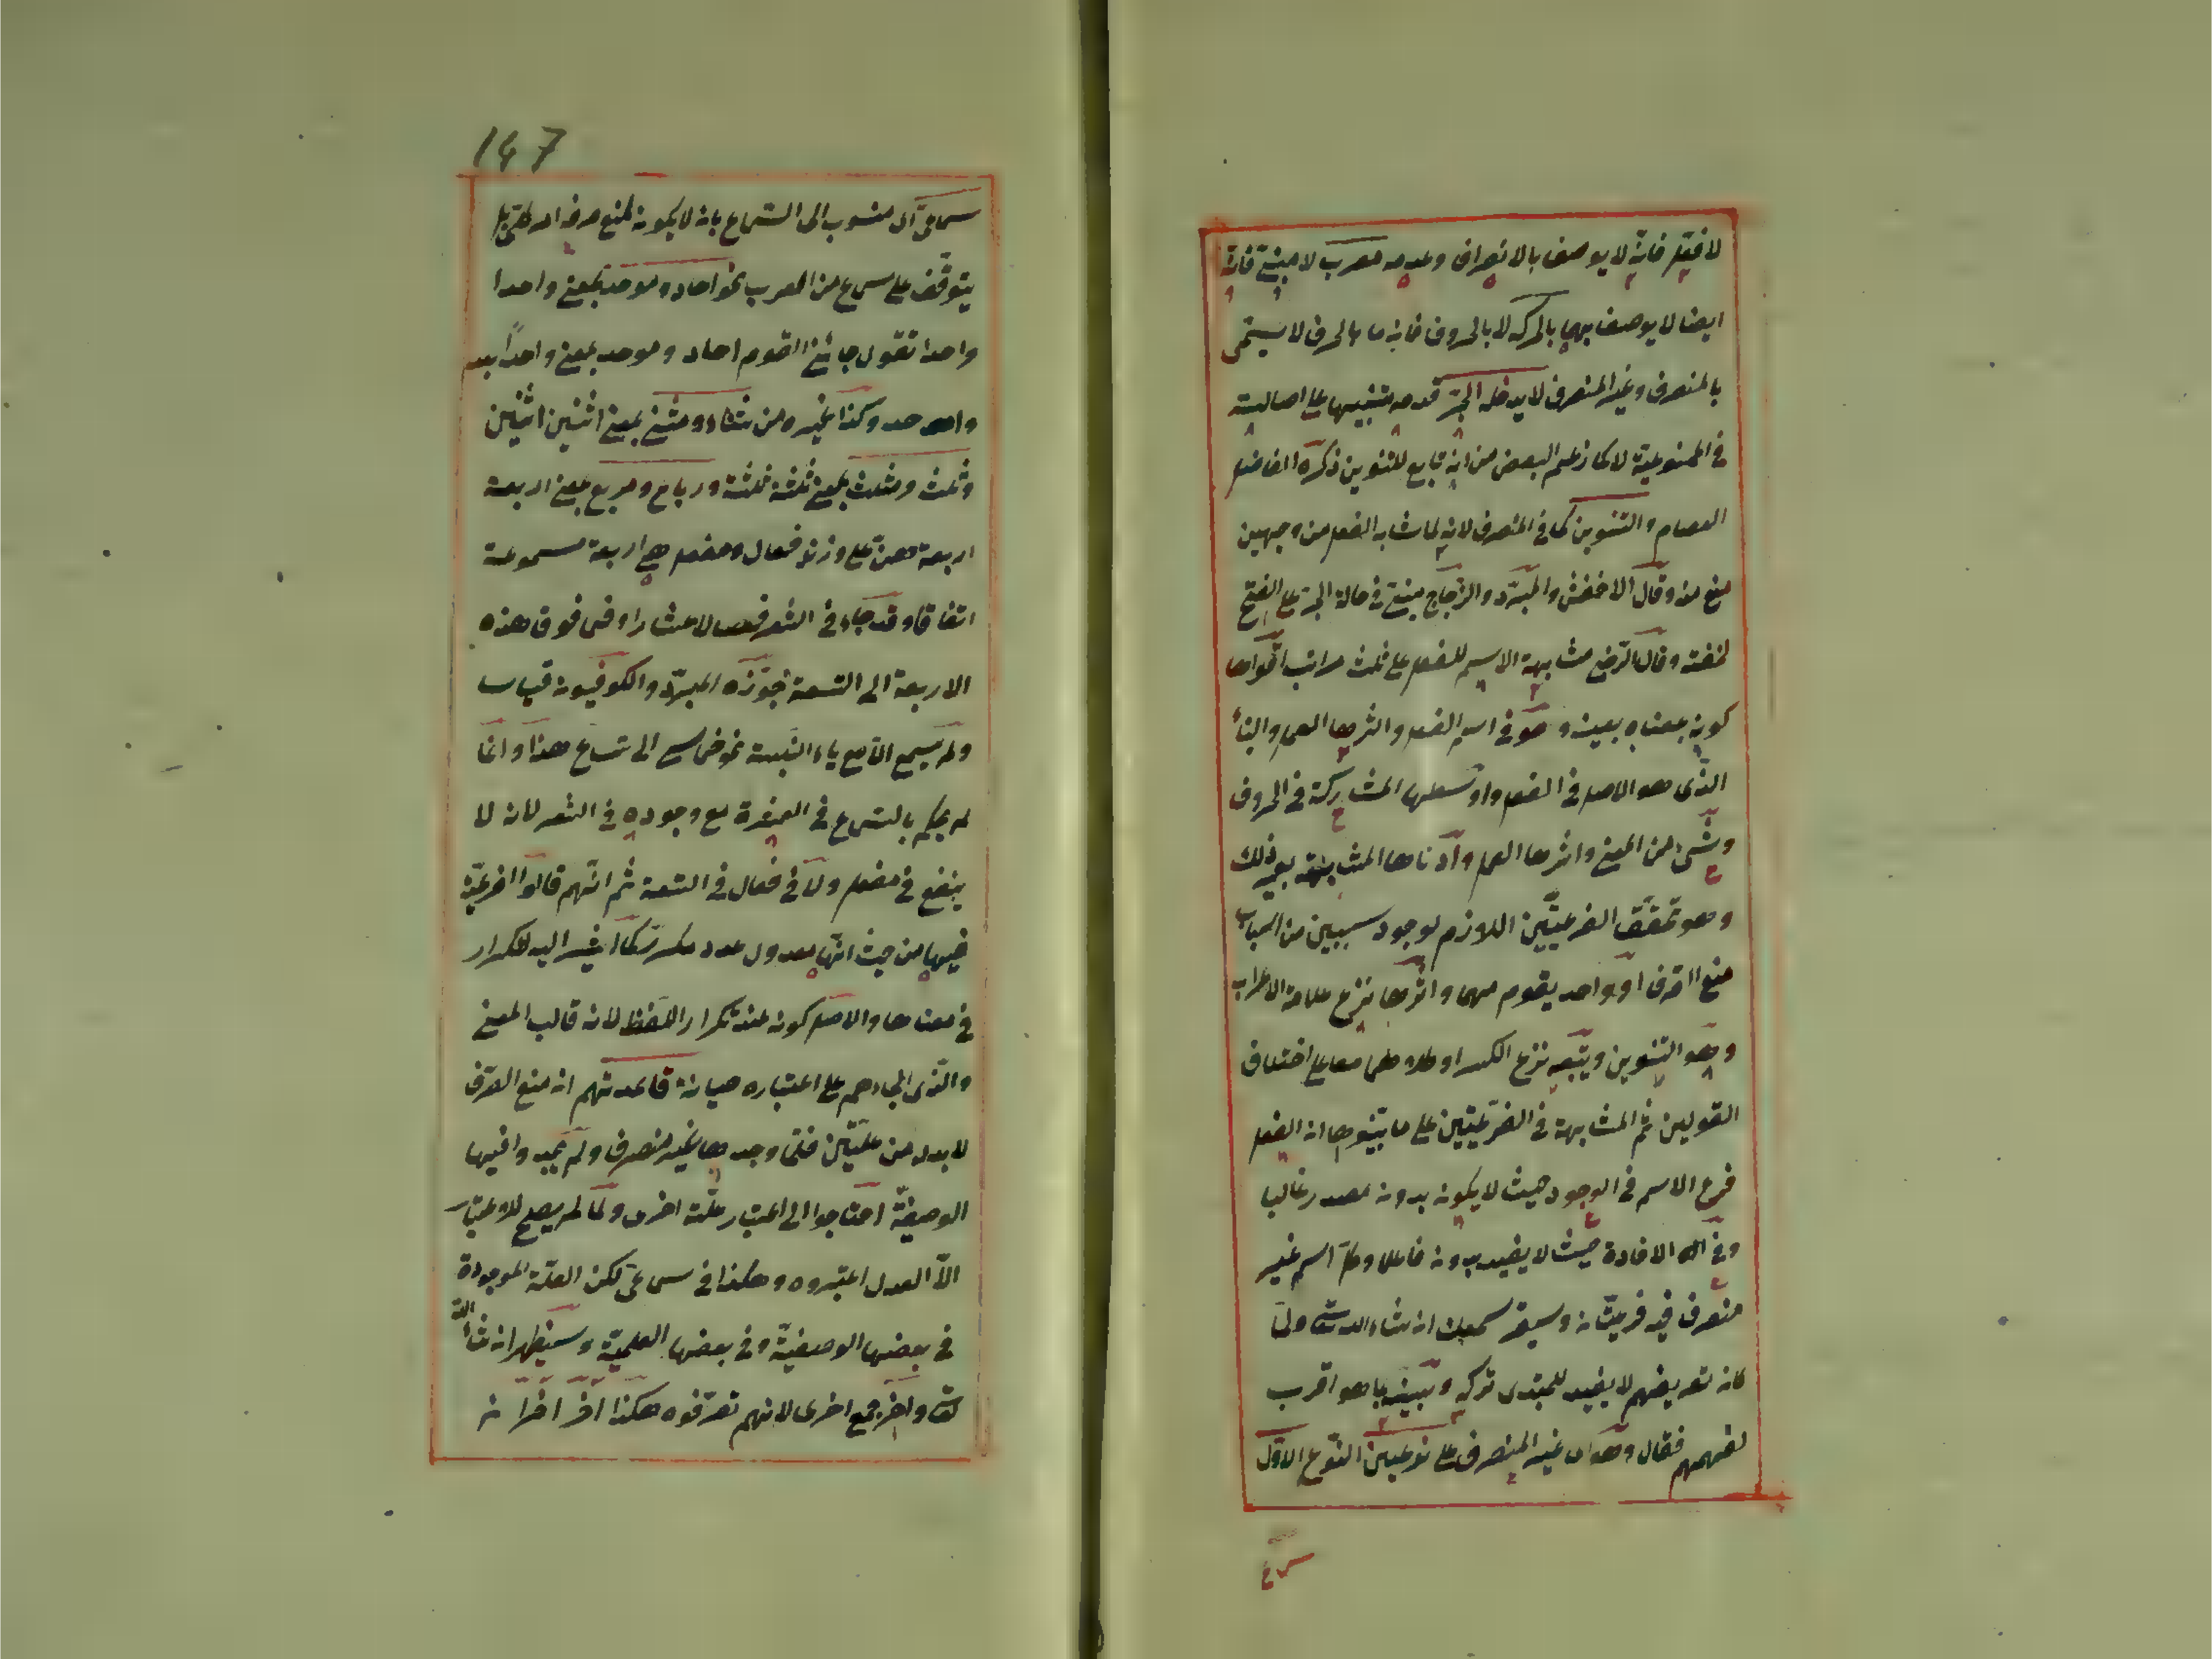 لا فعل فانه لا يوصف بالانصراف وعدمه معرب لا مبنى فانه
ايضا لا يوصف بهما بالحركة لا بالحروف فانه ما بالحرف لا يسمى
بالمنصرف وغير المنصرف لا يدخله الجر قدمه تنبيها على اصالته
فى الممنوعية لا كما زعم البعض من انه تابع للتنوين ذكره الفاضل
العصام والتنوين كما فى المنصرف لانه لما شابه الفعل من وجهين
منع منه وقال الاخفش والمبرد والزجاج مبنى فى حالة الجر على الفتح
لخفته وقال الرضى مشابهة الاسم للفعل على ثلث مراتب اقواها
كونه بمعناه بعينه وهو فى اسم الفعل واثرها العمل والبناء
الذى هو الاصل فى الفعل واوسطها المشاركة فى الحروف
وشىء من المعنى واثرها العمل وادناها المشابهة بغير ذلك
وهو تحقق الفرعيتين اللازم لوجود سببين من اسباب
منع الصرف او واحد يقوم مقامهما واثرها نزع علامة الاعراب
وهو التنوين ويتبعه نزع الكسر او كلاهما معا على اختلاف
القولين ثم المشابهة فى الفرعيتين على ما بينوها ان الفعل
فرع الاسم فى الوجود حيث لا يكون بدون مصدر غالبا
وفى الافادة حيث لا يفيد بدون فاعل وكل اسم غير
منصرف فيه فرعيتان وسيقر سمعك ان شاء الله تعالى ولما
كان تعريفهم لا يفيد للمبتدى تركه وبينه بما هو اقرب
لفهمهم فقال وهو اى غير المنصرف على نوعين النوع الاول
سماعى
147
سماعى اى منسوب الى السماع بان لا يكون لمنع صرفه امر كلى بل
يتوقف على سماع من العرب نحو احاد وموحد بمعنى واحدا
واحدا تقول جائنى القوم احاد وموحد بمعنى واحدا بعد
واحد وكذا غيره من ثناء ومثنى بمعنى اثنين اثنين
وثلث ومثلث بمعنى ثلثة ثلثة ورباع ومربع بمعنى اربعة
اربعة فعلى وزن فعال ومفعل هى اربعة مسموعة
اتفاقا وقد جاء فى الشعر فعال لاعشار او فى فوق هذه
الاربعة الى التسعة جوزه المبرد والكوفيون قياسا
ولم يسمع الا مع ياء النسبة نحو خماسى الى تساع هذا وانما
لم يحكم بالسماع فى العشرة مع وجوده فى الشعر لانه لا
ينفع فى مفعل ولا فى فعال فى السعة ثم انهم قالوا الفرعية
فيها من حيث انها معدول عدد مكرر كما اشير اليه للتكرار
فى معناها والاصل كونه عند تكرار اللفظ لانه قالب المعنى
والذى الجاءهم على اعتباره صيانة قاعدتهم ان منع الصرف
لا بد له من علتين فلما وجدوها غير منصرف ولم يجدوا فيها
الوصفية احتاجوا الى اعتبار علة اخرى ولما لم يصلح للاعتبار
الا العدل اعتبروه وهكذا فى سماعى لكن العلة الموجودة
فى بعضها الوصفية وفى بعضها العلمية وسيظهر ان شاء الله
تعالى واخر جمع اخرى لانهم تعرفوه هكذا آخر آخران